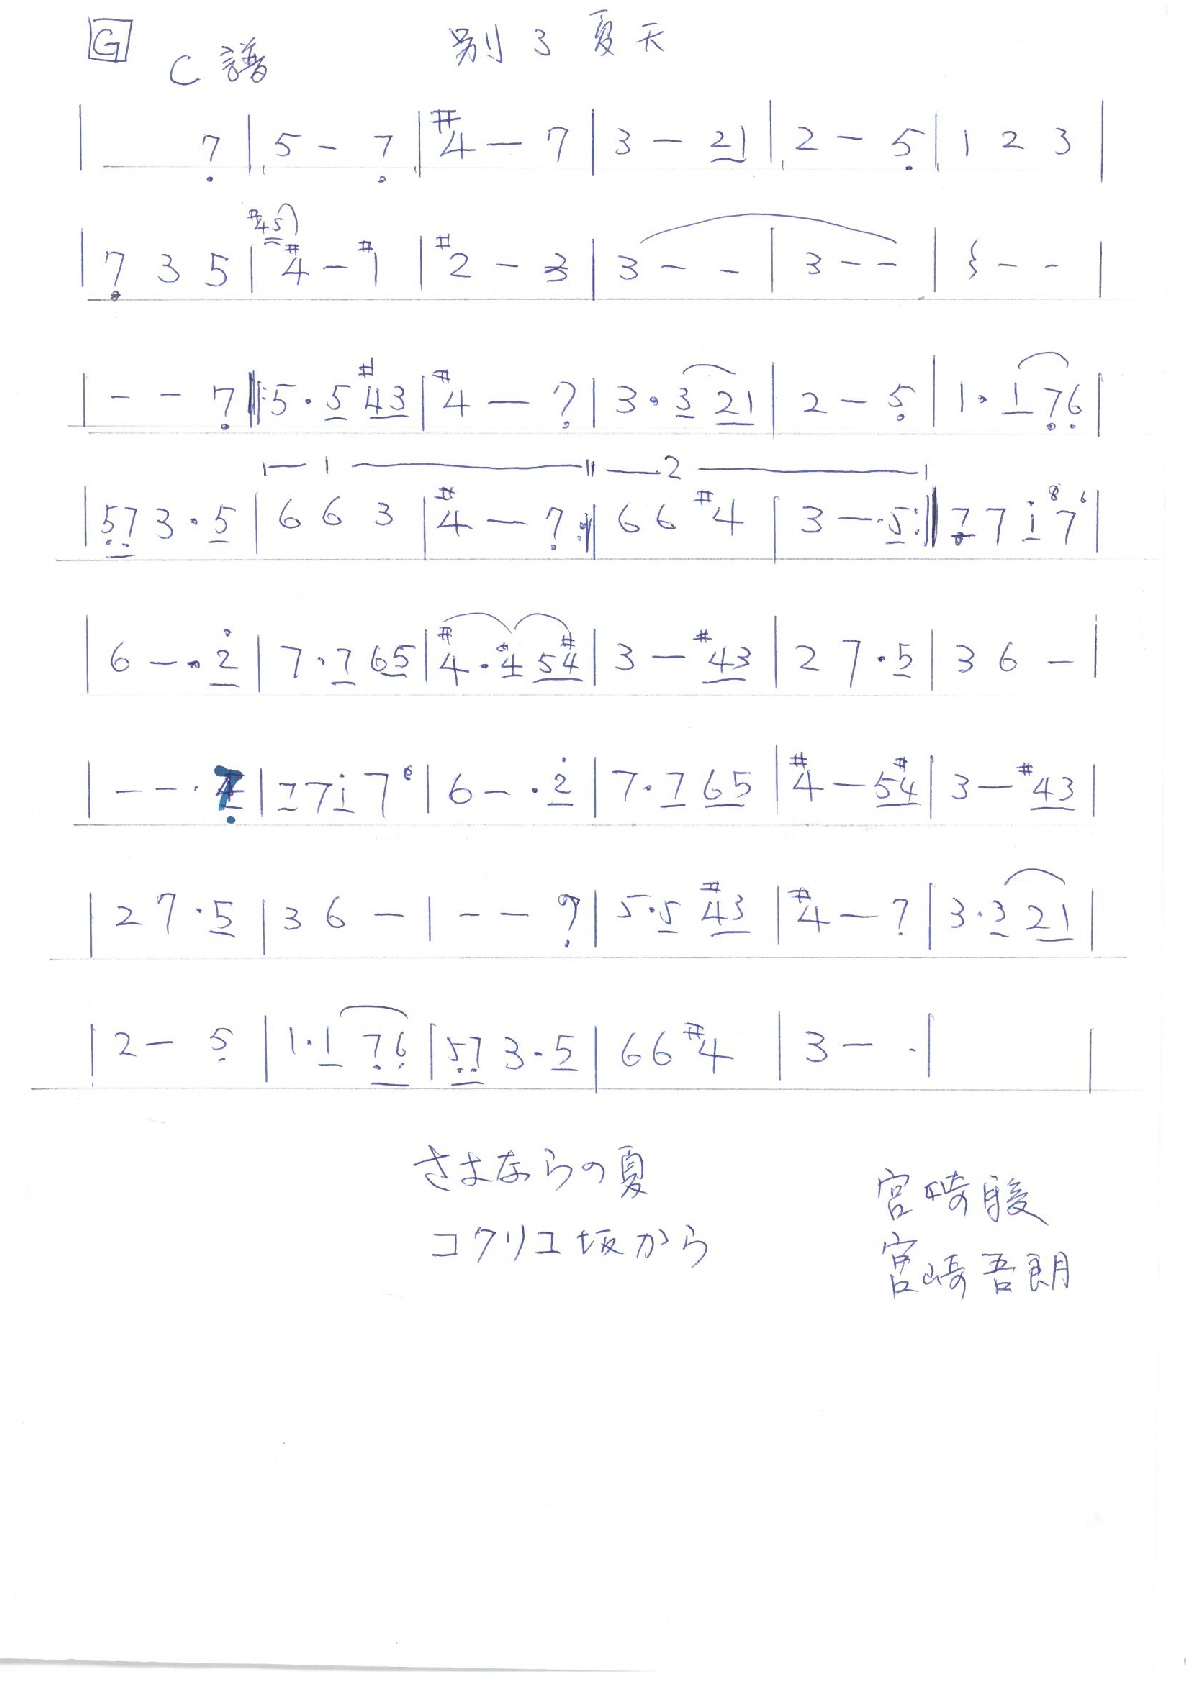 G C譜 別了夏天
| 7̣ | 5 - 7̣ | #4 - 7 | 3 - 2̲1̲ | 2 - 5̣ | 1 2 3 |
#45
| 7̣ 3 5 | #4 - #1 | #2 - 3 | 3 - - | 3 - - | 𝄽 - - |
| - - 7̣ ‖: 5 · 5̲ #4̲3̲ | #4 - 7̣ | 3 · 3̲ 2̲1̲ | 2 - 5̣ | 1 · 1̲ 7̣6̣ |
1 2
| 5̣̲7̣̲ 3 · 5̲ | 6 6 3 | #4 - 7̣ :‖ 6 6 #4 | 3 - · 5̲ :‖ 7̲ 7 i̲ 7 |
| 6 - · 2̲̇ | 7 · 7̲ 6̲5̲ | #4 · #4̲ 5̲#4̲ | 3 - #4̲3̲ | 2 7 · 5̲ | 3 6 - |
| - - · 7̣̲ | 7̲ 7 i̲ 7 6 | 6 - · 2̲̇ | 7 · 7̲ 6̲5̲ | #4 - 5̲#4̲ | 3 - #4̲3̲ |
| 2 7 · 5̲ | 3 6 - | - - 7̣ | 5 · 5̲ #4̲3̲ | #4 - 7̣ | 3 · 3̲ 2̲1̲ |
| 2 - 5̣ | 1 · 1̲ 7̣̲6̣̲ | 5̣̲7̣̲ 3 · 5̲ | 6 6 #4 | 3 - · | |
さよならの夏
コクリコ坂から
宮崎駿
宮崎吾朗